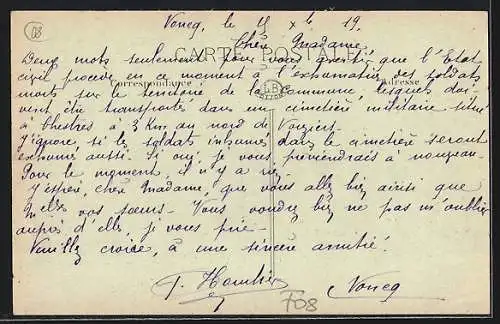 Voncq, le 15 Xbre 19.
Chère Madame,
CARTE POSTALE
Deux mots seulement pour vous avertir que l'Etat
Correspondance
Adresse
civil procède en ce moment à l'exhumation des soldats
morts sur le territoire de la Commune, lesquels doi-
vent être transportés dans un cimetière militaire situé
à Chestres à 3 Km au nord de Vouziers.
J'ignore, si les soldats inhumés dans le cimetière seront
exhumés aussi. Si oui, je vous préviendrais à nouveau.
Pour le moment, il n'y a rien.
J'espère, chère Madame, que vous allez bien ainsi que
Melles vos sœurs. Vous voudrez bien ne pas m'oublier
auprès d'elles, je vous prie.
Veuillez croire, à une sincère amitié.
Voncq
F08